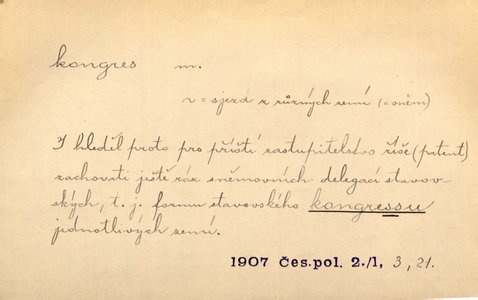 kongres m.
v = sjezd z různých zemí (= sněm)
I hleděl proto pro příští zastupitelstvo říše (patent)
zachovati ještě ráz sněmovních delegací stavov-
ských, t. j. formu stavovského kongressu
jednotlivých zemí.
1907 Čes. pol. 2./1, 3, 21.